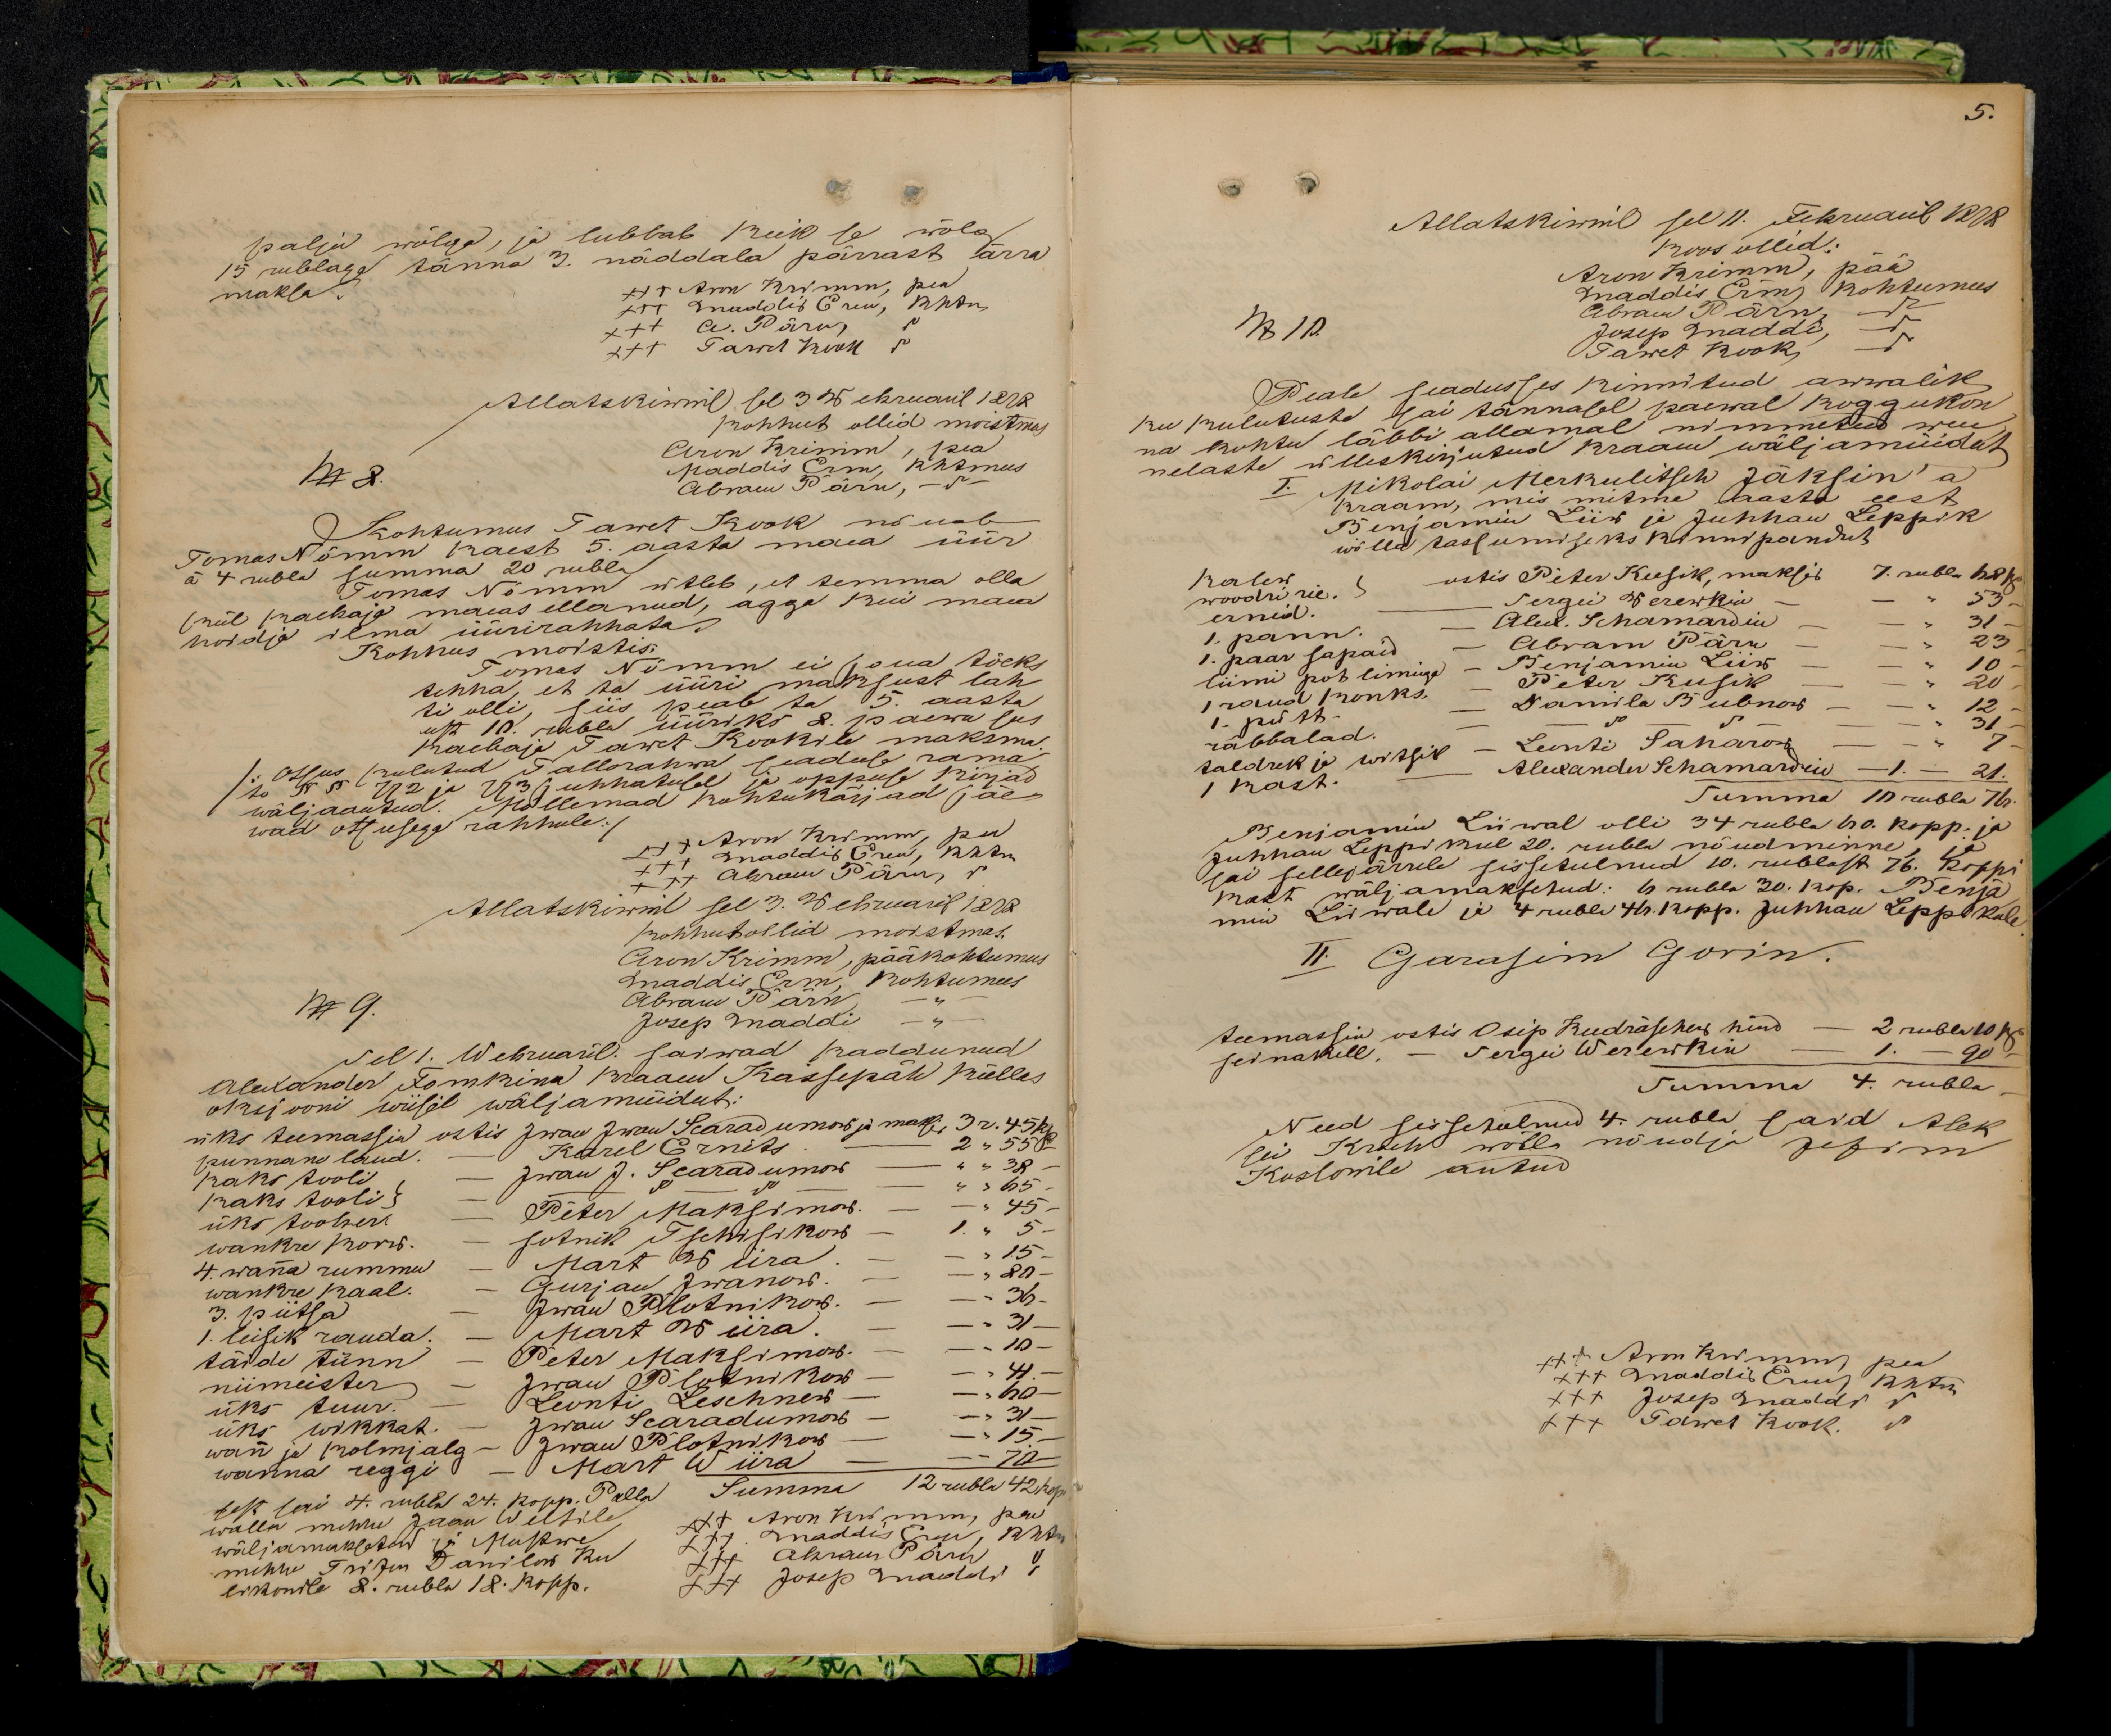 palja wõlga, ja lubbab keik se wõla
15 rublaga tänna 3. näddala pärrast ärra
maksa.
+++ Aron Krimm, pea
+++ Maddis Erm, khtm
+++ A. Pärn,
+++ Tawet Kook
Allatskiwwil sel 3 Webruaril 1878
kohhut ollid moistmas
Aron Krimm, pea
Maddis Erm, khtmees
Abram Pärn, —
№ 8.
Kohtumees Tawet Kook nõuab
Tomas Nõmm kaest 5. aasta maea üür
à 4 rubla summa 20 rubla
Tomas Nõmm ütleb, et temma olla
kül kaebaja maeas ellanud, agga kui maea
hoidja ilma üürirahhata.
Kohhus moistis:
Tomas Nõmm ei joua tõeks
tehha, et ta üüri maksust lah
ti olli, siis peab ta 5. aasta
eest 10. rubla üüriks 8. paewa sees
kaebaja Tawet Kookile maksma.
/: Otsus kulutud Tallorahwa seaduse rama
to §§ 772 ja 773 juhhatusel ja oppuse kirjad
wäljaantud. Mõllemad kohtukäijad jäe
wad otsusega rahhule:/
+++ Aron Krimm, pea
+++ Maddis Erm, khtm
+++ Abram Pärn,
Allatskiwwil sel 3. Webruaril 1878
kohhut ollid moistmas.
Aron Krimm, pääkohtumees
Maddis Erm, kohtumees
Abram Pärn — " —
Josep Maddi — " —
№ 9.
Sel 1. Webruaril. saiwad kaddunud
Alexander Fomkina kraam Kassepäh küllas
oksjooni wiisil wäljamüidut:
üks teemassin ostis Jwan Jwan Scaradumow ja maksis 3 r. 45 k
punnane laud. — Karel Ernits — 2 " 55
kaks tooli — Jwan J. Scaradumow — " " 38 —
kaks tooli } — — — " " 65 —
üks toober — Peter Maksimow. — — " 45 —
wankre korw. — sotnik Tschisikow — 1. " 5 —
4. wanna rummu — Mart Wiira. — — " 15 —
wankre kaal. — Gurjan Jwanow. — — " 80 —
3. pütsa — Jwan Plotnikow. — — " 36 —
1. leisik rauda. — Mart Wiira. — — " 31 —
täide tünn — Peter Maksimow. — — " 10 —
niimeister — Jwan Plotnikow — — " 41. —
üks tuur. — Leonti Leschnew — — " 60 —
üks wikkat. — Jwan Scaradumow — — " 31 —
wann ja kolmjalg — Jwan Plotnikow — — " 15. —
wanna reggi — Mart Wiira — — 70 —
Summa 12 rubla 42 kop.
sest sai 4. rubla 24. kopp. Palla
walla mehhe Jaan Weltsile
wäljamaksetud ja Mustwe
mehhe Trifon Danilow Ku
likowile 8. rubla 18. kopp.
+++ Aron Krimm, pea
+++ Maddis Erm, khtm
+++ Abram Pärn "
+++ Josep Maddi "
5.
Allatskiwwil sel 11. Februaril 1878
Koos ollid:
Aron Krimm, pää
Maddis Erm, kohtumees
Abram Pärn, —
Josep Maddi, —
Tawet Kook, —
№ 10.
Peale seadusses kinnitud awwalik
ku kulutuste sai tännasel paewal koggukon
na kohtu läbbi allamal nimmetud wee
nelaste ülleskirjutud kraam wäljamüidut
I. Mikolai Merkulitsch Jäksin'a
kraam, mis mitme aasta eest
Benjamin Liiw ja Juhhan Leppik
wõlla tassumiseks kinnipandut
kalew
woodri rie. } ostis Peter Kusik, maksis 7. rubla 68 k
ernid. — Sergei Werewkin — — " 53 —
1. pann. — Alex. Schamardin — — " 31 —
1. paar sapaid — Abram Pärn — — " 23
liimi pot limiga — Benjamin Liiw — — " 10 —
1 raud konks. — Peter Kusik — — " 20 —
1. pütt. — Danila Bubnow — — " 12 —
räbbalad. — — — " 31 —
taldrek ja witsik — Leonti Saharow — — " 7 —
1 kast. — Alexander Schamardin — 1. — 21.
Summa 10 rubla 76.
Benjamin Liiwal olli 34 rubla 60. kopp. ja
Juhhan Leppikul 20. rubla nõudminne, ja
sai sellejärrele sissetulnud 10. rublast 76. koppi
kast wäljamaksetud: 6 rubla 30. kop. Benja
min Liiwale ja 4 rubla 46. kopp. Juhhan Leppikule.
II. Garasim Gorin.
teemassin ostis Osip Kudräschew hind — 2 rubla 10 k
seinakell. — Sergei Werewkin — 1. — 90 —
Summa 4. rubla —
Need sissetulnud 4. rubla said Alek
sei wõlla nõudja Jefim
Koslowile antud
+++ Aron Krimm, pea
+++ Maddis Erm, khtm
+++ Josep Maddi
+++ Tawet Kook.